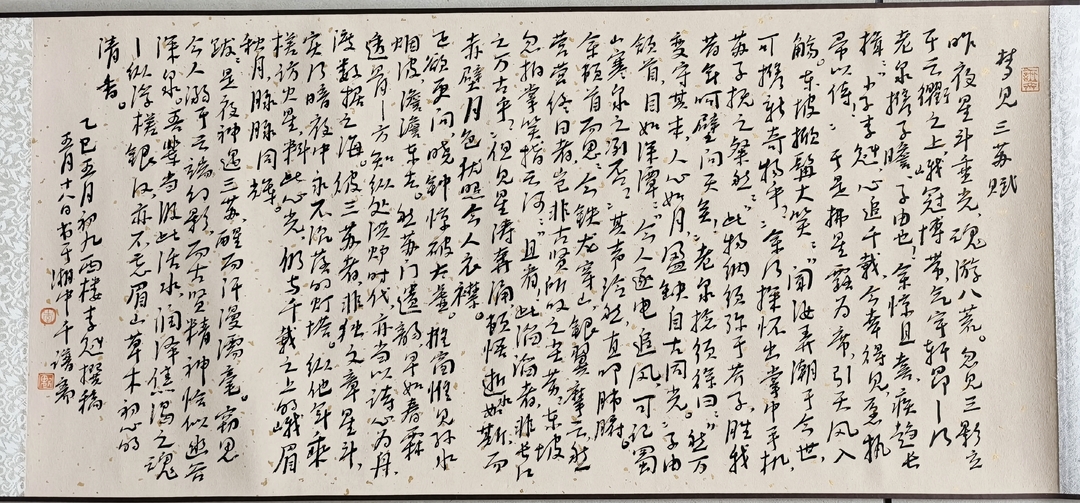 梦见三苏赋
昨夜星斗垂光，魂游八荒。忽见三影立
于云衢之上，峨冠博带，气宇轩昂——乃
老泉携子瞻、子由也！余惊且喜，疾趋长
揖：小子李，心追千载，今幸得见，愿执
帚以侍。于是拂星霞为席，引天风入
觞。东坡掀髯大笑：闻汝弄潮于今世，
可携新奇物乎？余乃探怀出掌中手机，
苏子抚之粲然：此物纳须弥于芥子，胜我
昔年呵壁问天矣！老泉捻须徐曰：然万
变守其本，人心如月，盈缺自古同光。子由
颔首，目如深潭：今人逐电追风，可记蜀
山寒泉之冽否？其声泠然，直叩肺腑。
余顿首而思：今铁龙穿山，银翼摩云，然
营营终日者，岂非古贤所叹之尘劳？东坡
忽拍掌笑指云河：且看！此滔滔者，非长江
之万古乎？但见星涛奔涌，顿悟逝如斯，而
赤壁月色犹照今人衣襟。
正欲更问，晓钟惊破大荒。推窗惟见环水
烟波，澹澹东去。然苏门遗韵，早如春霖
透骨——方知纵处深邃时代，亦当以诗心为舟，
渡数据之海。彼三苏者，非独文章星斗，
实乃暗夜中永不沉落的灯塔。纵他年乘
槎访火星，料此心光，仍与千载之上的峨眉
秋月，脉脉同辉。
跋：是夜神遇三苏，醒而汗漫濡毫。窃思
今人溺于云端幻影，而古贤精神恰似幽谷
深泉。吾辈当汲此活水，润泽焦渴之魂
——纵浮槎银汉，亦不忘眉山草木初心的
清香。
乙巳五月初九西楼李撰稿
五月十八日书于湖中千